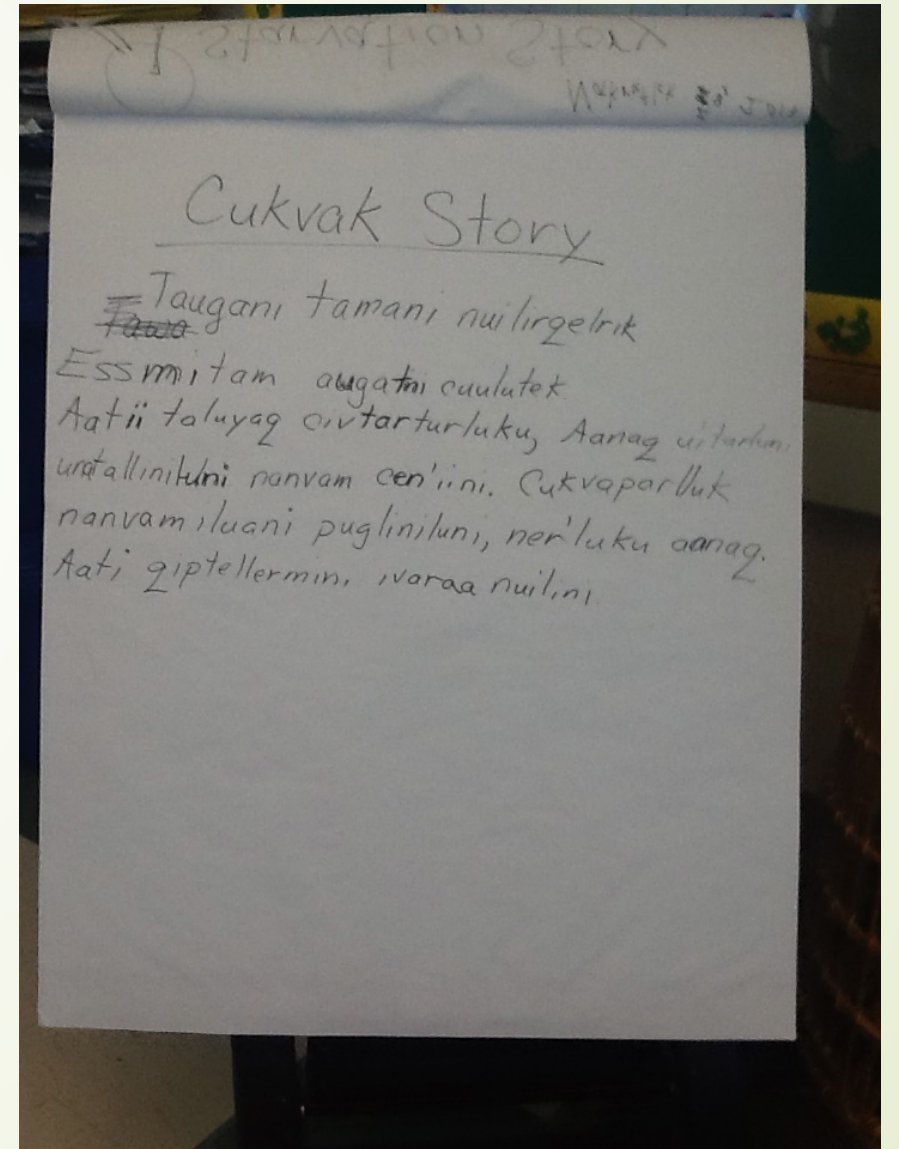 Starvation Story
Cukvak Story
Taugani tamani nuilirqelrik
Essmitam augatni cuulutek
Aatii taluyaq civtarturluku, Aanaq uitarluni
nanvam cen'iini. Cukvaparlluk
nanvam iluani pugliniluni, ner'luku aanaq.
Aati qiptellermini ivaraa nuilini.